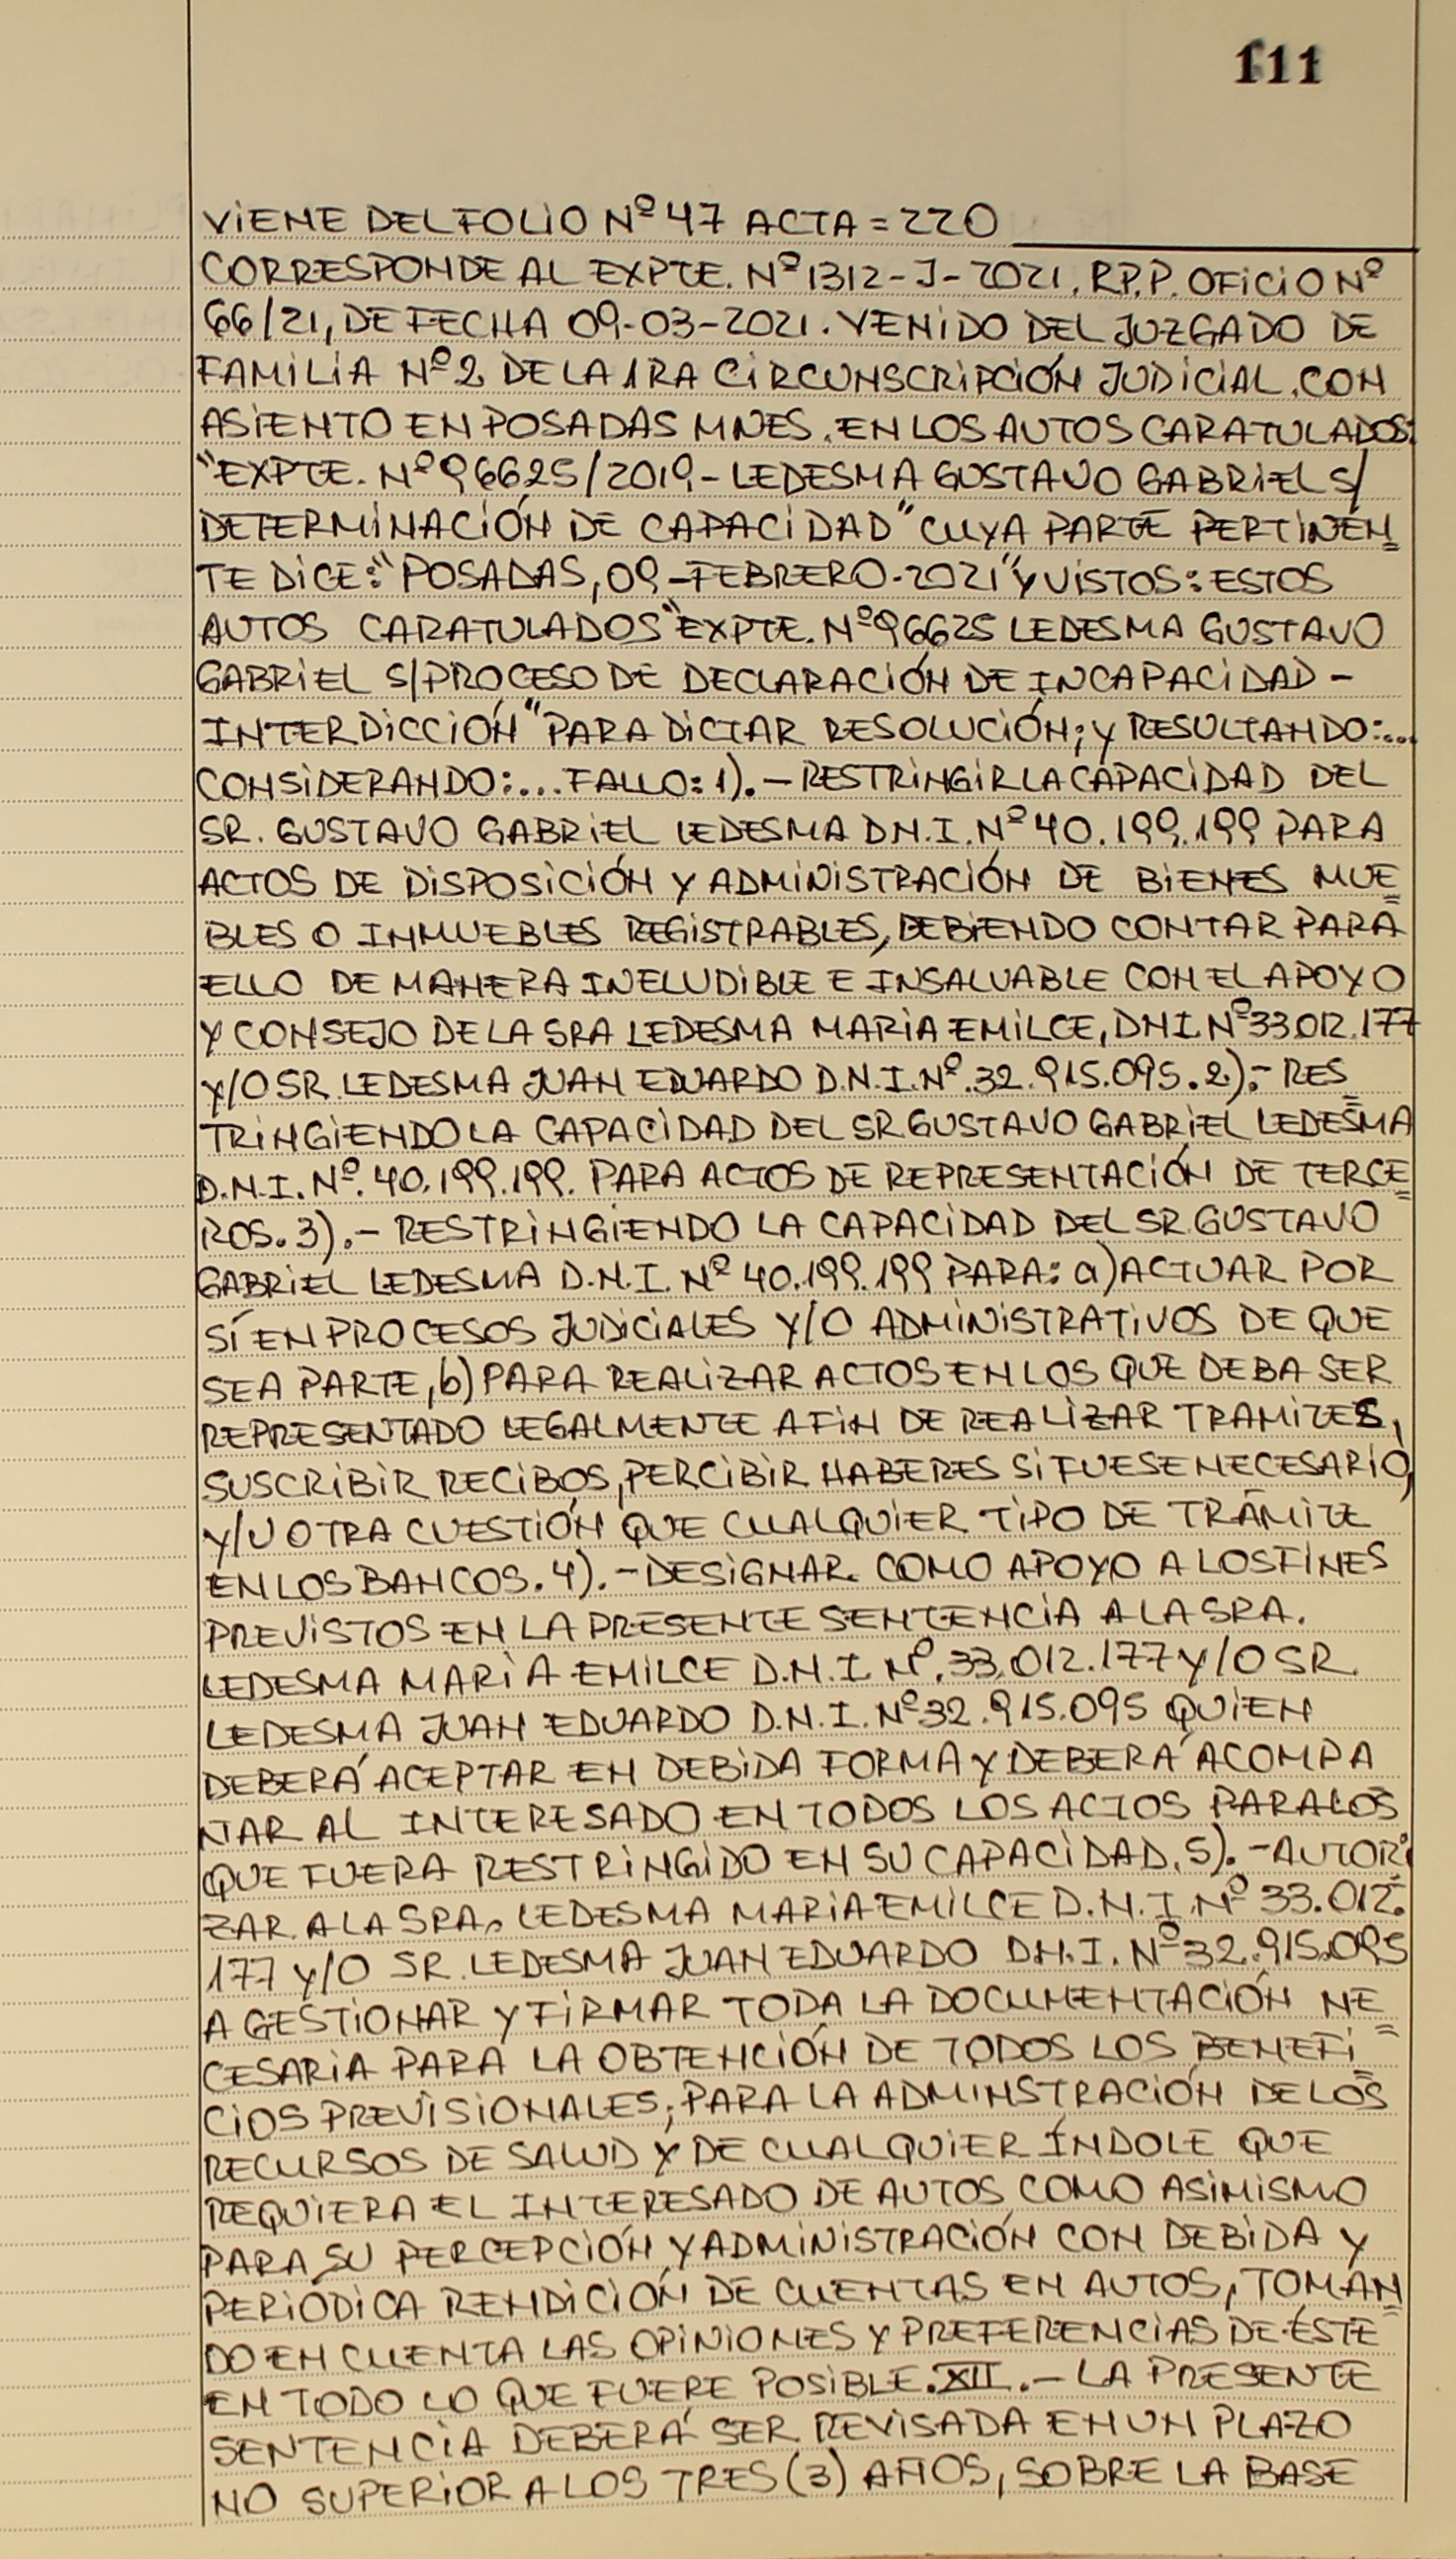 111
VIENE DEL FOLIO Nº 47 ACTA = 220
CORRESPONDE AL EXPTE. Nº 1312-J-2021, R.P.P. OFICIO Nº
66/21, DE FECHA 09-03-2021. VENIDO DEL JUZGADO DE
FAMILIA Nº 2 DE LA 1RA CIRCUNSCRIPCIÓN JUDICIAL, CON
ASIENTO EN POSADAS MNES. EN LOS AUTOS CARATULADOS:
"EXPTE. Nº 96625/2019-LEDESMA GUSTAVO GABRIEL S/
DETERMINACIÓN DE CAPACIDAD" CUYA PARTE PERTINEN=
TE DICE: "POSADAS, 09-FEBRERO-2021" Y VISTOS: ESTOS
AUTOS CARATULADOS "EXPTE. Nº 96625 LEDESMA GUSTAVO
GABRIEL S/PROCESO DE DECLARACIÓN DE INCAPACIDAD -
INTERDICCIÓN" PARA DICTAR RESOLUCIÓN; Y RESULTANDO:...
CONSIDERANDO:... FALLO: 1).- RESTRINGIR LA CAPACIDAD DEL
SR. GUSTAVO GABRIEL LEDESMA D.N.I. Nº 40.199.199 PARA
ACTOS DE DISPOSICIÓN Y ADMINISTRACIÓN DE BIENES MUE=
BLES O INMUEBLES REGISTRABLES, DEBIENDO CONTAR PARA
ELLO DE MANERA INELUDIBLE E INSALVABLE CON EL APOYO
Y CONSEJO DE LA SRA LEDESMA MARIA EMILCE, DNI Nº 33.012.177
Y/O SR. LEDESMA JUAN EDUARDO D.N.I. Nº. 32.915.095. 2).- RES=
TRINGIENDO LA CAPACIDAD DEL SR. GUSTAVO GABRIEL LEDESMA
D.N.I. Nº. 40.199.199. PARA ACTOS DE REPRESENTACIÓN DE TERCE=
ROS. 3).- RESTRINGIENDO LA CAPACIDAD DEL SR. GUSTAVO
GABRIEL LEDESMA D.N.I. Nº 40.199.199 PARA: a) ACTUAR POR
SÍ EN PROCESOS JUDICIALES Y/O ADMINISTRATIVOS DE QUE
SEA PARTE, b) PARA REALIZAR ACTOS EN LOS QUE DEBA SER
REPRESENTADO LEGALMENTE A FIN DE REALIZAR TRAMITES,
SUSCRIBIR RECIBOS, PERCIBIR HABERES SI FUESE NECESARIO,
Y/U OTRA CUESTIÓN QUE CUALQUIER TIPO DE TRÁMITE
EN LOS BANCOS. 4).- DESIGNAR COMO APOYO A LOS FINES
PREVISTOS EN LA PRESENTE SENTENCIA A LA SRA.
LEDESMA MARIA EMILCE D.N.I. Nº. 33.012.177 Y/O SR.
LEDESMA JUAN EDUARDO D.N.I. Nº 32.915.095 QUIEN
DEBERÁ ACEPTAR EN DEBIDA FORMA Y DEBERÁ ACOMPA
ÑAR AL INTERESADO EN TODOS LOS ACTOS PARA LOS
QUE FUERA RESTRINGIDO EN SU CAPACIDAD. 5).- AUTORI=
ZAR A LA SRA. LEDESMA MARIA EMILCE D.N.I. Nº 33.012.
177 Y/O SR. LEDESMA JUAN EDUARDO D.N.I. Nº 32.915.095
A GESTIONAR Y FIRMAR TODA LA DOCUMENTACIÓN NE=
CESARIA PARA LA OBTENCIÓN DE TODOS LOS BENEFI=
CIOS PREVISIONALES; PARA LA ADMINSTRACIÓN DE LOS
RECURSOS DE SALUD Y DE CUALQUIER ÍNDOLE QUE
REQUIERA EL INTERESADO DE AUTOS COMO ASIMISMO
PARA SU PERCEPCIÓN Y ADMINISTRACIÓN CON DEBIDA Y
PERIÓDICA RENDICIÓN DE CUENTAS EN AUTOS, TOMAN=
DO EN CUENTA LAS OPINIONES Y PREFERENCIAS DE ÉSTE
EN TODO LO QUE FUERE POSIBLE. XII.- LA PRESENTE
SENTENCIA DEBERÁ SER REVISADA EN UN PLAZO
NO SUPERIOR A LOS TRES (3) AÑOS, SOBRE LA BASE